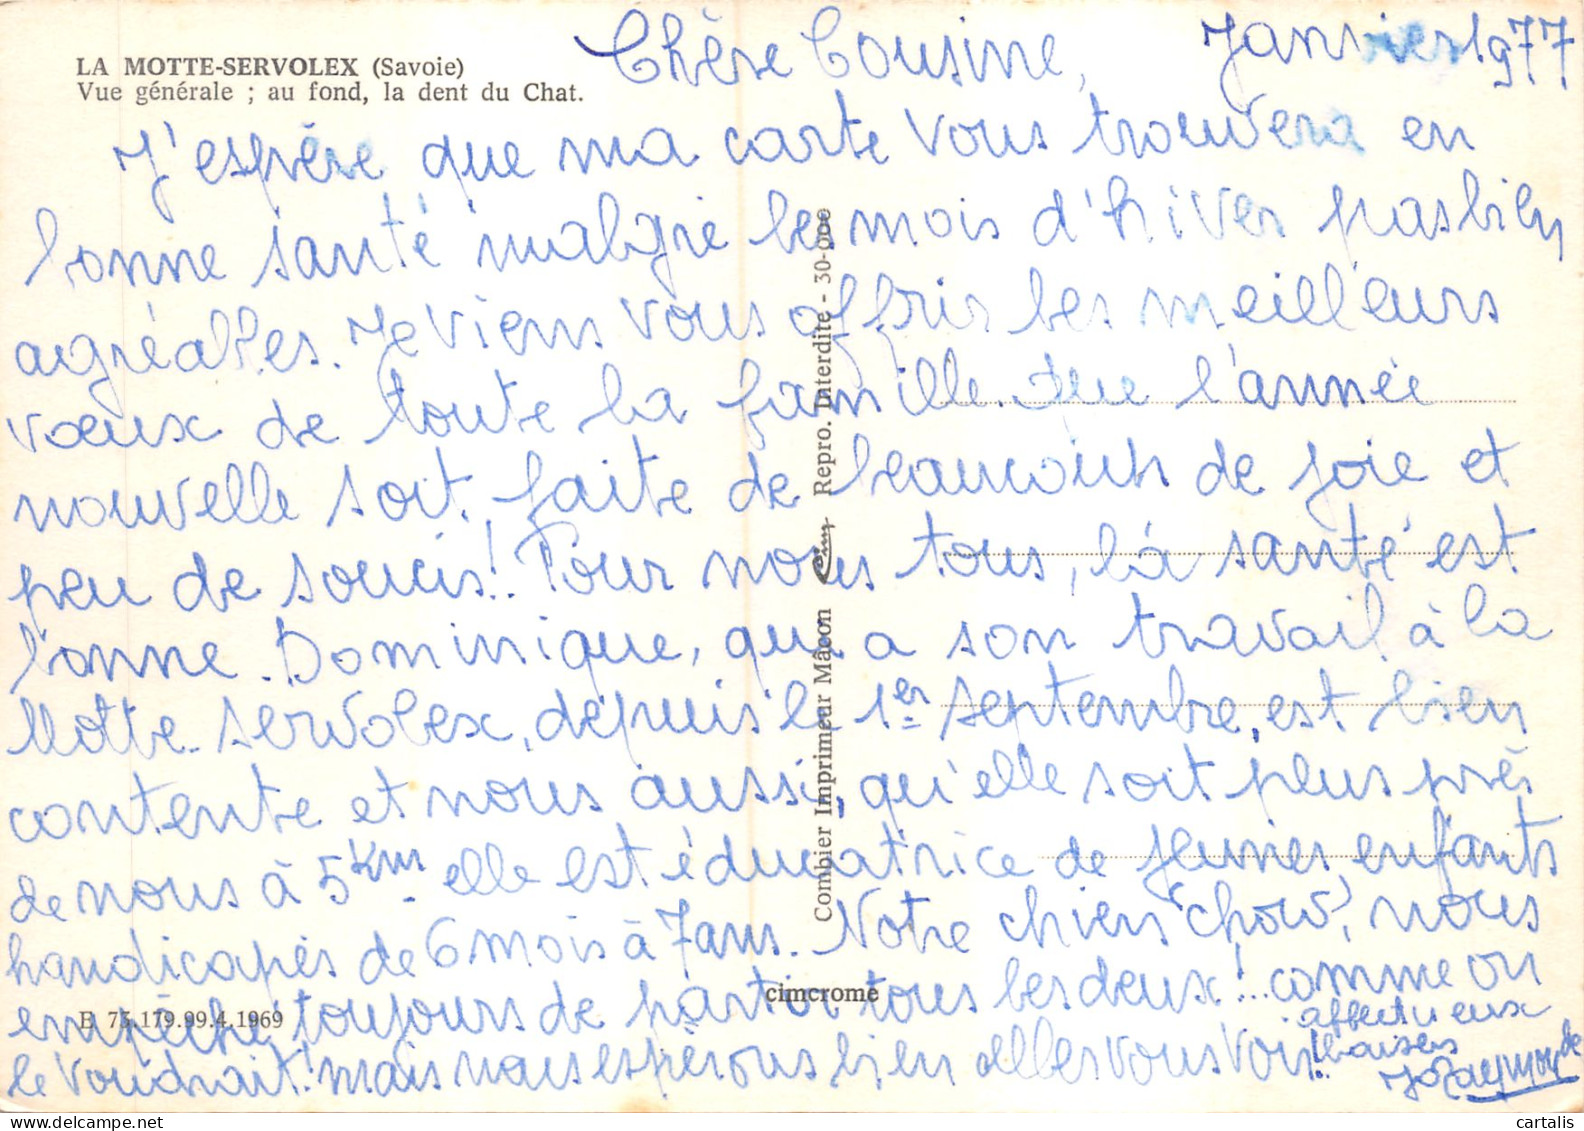 LA MOTTE-SERVOLEX (Savoie)
Vue générale ; au fond, la dent du Chat.
Janvier 1977
Chère Cousine,
J'espère que ma carte vous trouvera en
bonne santé malgré les mois d'hiver pas bien
agréables. Je viens vous offrir les meilleurs
vœux de toute la famille. Que l'année
nouvelle soit, faite de beaucoup de joie et
peu de soucis! Pour nous tous, la santé est
bonne. Dominique, qui a son travail à la
Motte-Servolex, depuis le 1er septembre, est bien
contente et nous aussi, qu'elle soit plus près
de nous à 5 km. elle est éducatrice de jeunes enfants
handicapés de 6 mois à 7 ans. Notre chien "chow", nous
empêche toujours de partir tous les deux!... comme on
le voudrait! mais nous espérons bien aller vous voir!..
affectueux
baisers
Raymonde
Combier Imprimeur Mâcon Cim Repro. Interdite - 30-000
cimcrome
E 73.179.99.4.1969
cartalis